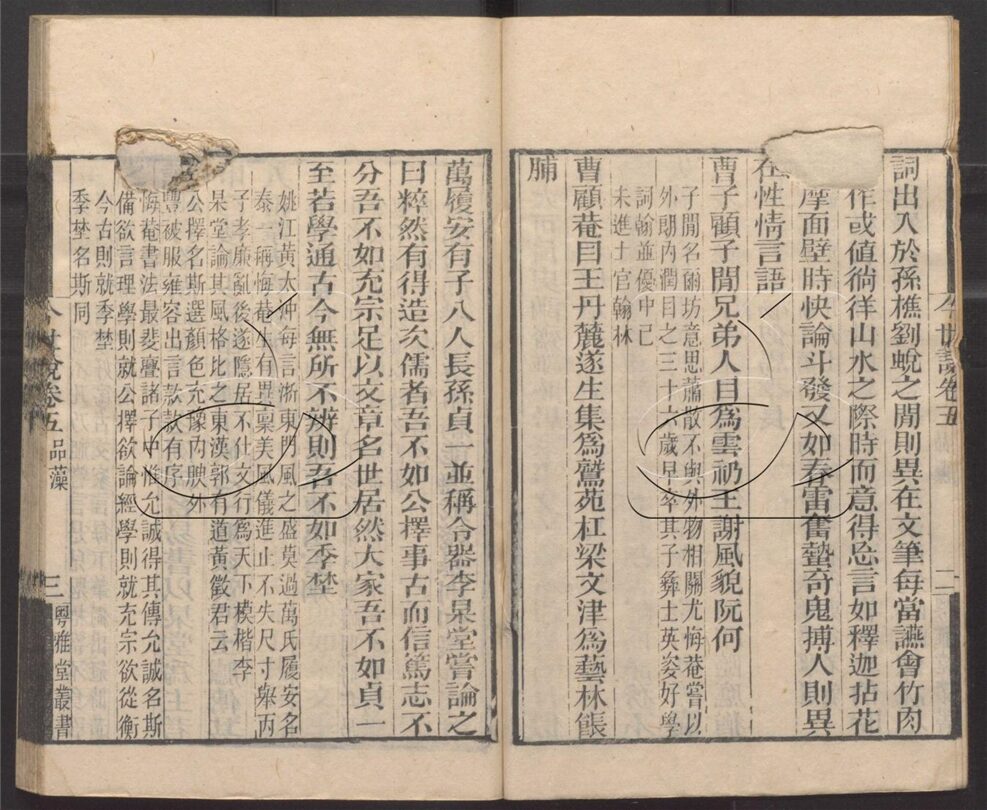 詞出入於孫樵劉蛻之閒則異在文筆每當讌會竹肉
作或値徜徉山水之際時而意得忘言如釋迦拈花
摩面壁時快論斗發又如春雷奮蟄奇鬼搏人則異
在性情言語
曹子顧子閒兄弟人目爲雲礽王謝風貌阮何
子閒名爾坊意思蕭散不與外物相關尤悔菴嘗以
外朗內潤目之三十六歲早卒其子彝士英姿好學
詞翰並優甲已
未進士官翰林
曹顧菴目王丹麓遂生集爲鷲苑杠梁文津爲藝林餦
脯
今世說卷五
二
萬履安有子八人長孫貞一並稱令器李杲堂嘗論之
曰粹然有得造次儒者吾不如公擇事古而信篤志不
分吾不如充宗足以文章名世居然大家吾不如貞一
至若學通古今無所不辨則吾不如季埜
姚江黃太沖每言浙東門風之盛莫過萬氏履安名
泰一稱悔菴生有異稟美風儀進止不失尺寸舉丙
子孝廉亂後遂隱居不仕文行爲天下模楷李
杲堂論其風格比之東漢郭有道黃徵君云
公擇名斯選顏色充豫內腴外
豐被服雍容出言款款有序
悔菴書法最斐亹諸子中惟允誠得其傳允誠名斯
備欲言理學則就公擇欲論經學則就充宗欲從衡
今古則就季埜
季埜名斯同
今世說卷五 品藻
三
粵雅堂叢書